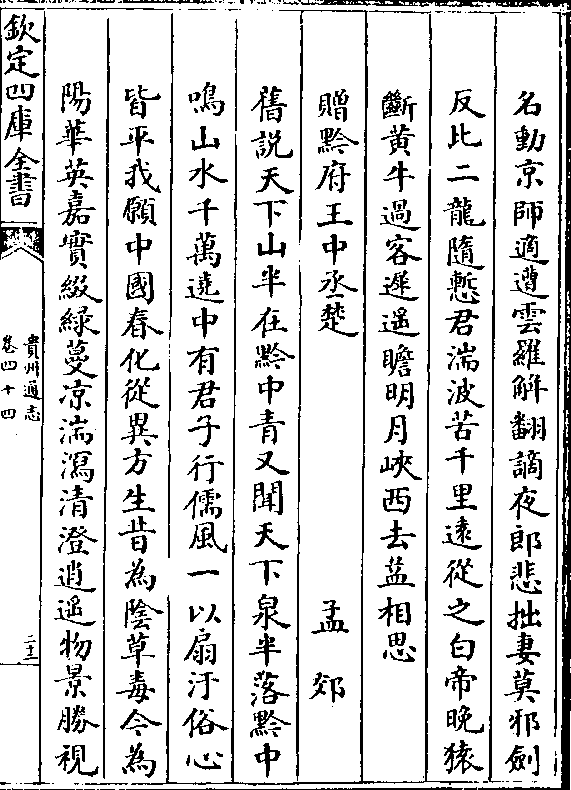 名動京師適遭雲羅解翻謫夜郎悲拙妻莫邪劒
反比二龍隨慙君湍波苦千里遠從之白帝晚猿
斷黃牛過客遲遥瞻明月峽西去益相思
贈黔府王中丞楚 孟郊
舊說天下山半在黔中青又聞天下泉半落黔中
鳴山水千萬遶中有君子行儒風一以扇汙俗心
皆平我願中國春化從異方生昔為陰草毒今為
陽華英嘉實綴綠蔓凉湍瀉清澄逍遥物景勝視
欽定四庫全書
貴州通志
卷四十四